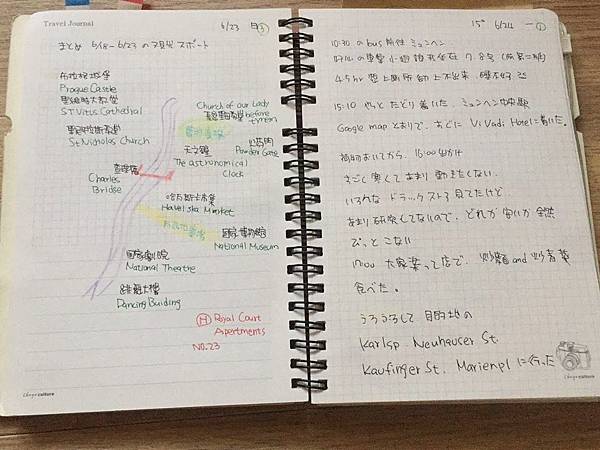 Travel Journal
6/23 日 ③
まとめ 6/18-6/23 の観光スポット
布拉格城堡
Prague Castle
聖維特大教堂
ST Vitus Cathedral
聖尼古拉斯教堂
St Nicholas Church
Church of our Lady
before
天文鐘
The astronomical
Clock
火藥門
Powder Gate
查理橋
Charles
Bridge
哈維爾市集
Havelska Market
國家博物館
National Museum
國家劇院
National Theatre
跳舞大樓
Dancing Building
Ⓗ Royal Court
Apartments
NO.23
15° 6/24 一 ①
10:30 の bus 前往 ミュンヘン
4.5 hr
15:10 やっと たどり着いた、ミュンヘン中央駅
Google map とおりで、すぐに Vi Vadi Hotel に着いた。
荷物おいてから、16:00 出かけ
すごく寒くて あまり 動きたくない。
いろんな ドラックストア 見てたけど
あまり研究してないので、どれが 安いか 全然
ぴっとこない
大家樂って店で、炒麵 and 炒青菜
食べた。
うろうろして 目的地の
Karlsp. Neuhauser St.
Kaufinger St. Marienpl に行った